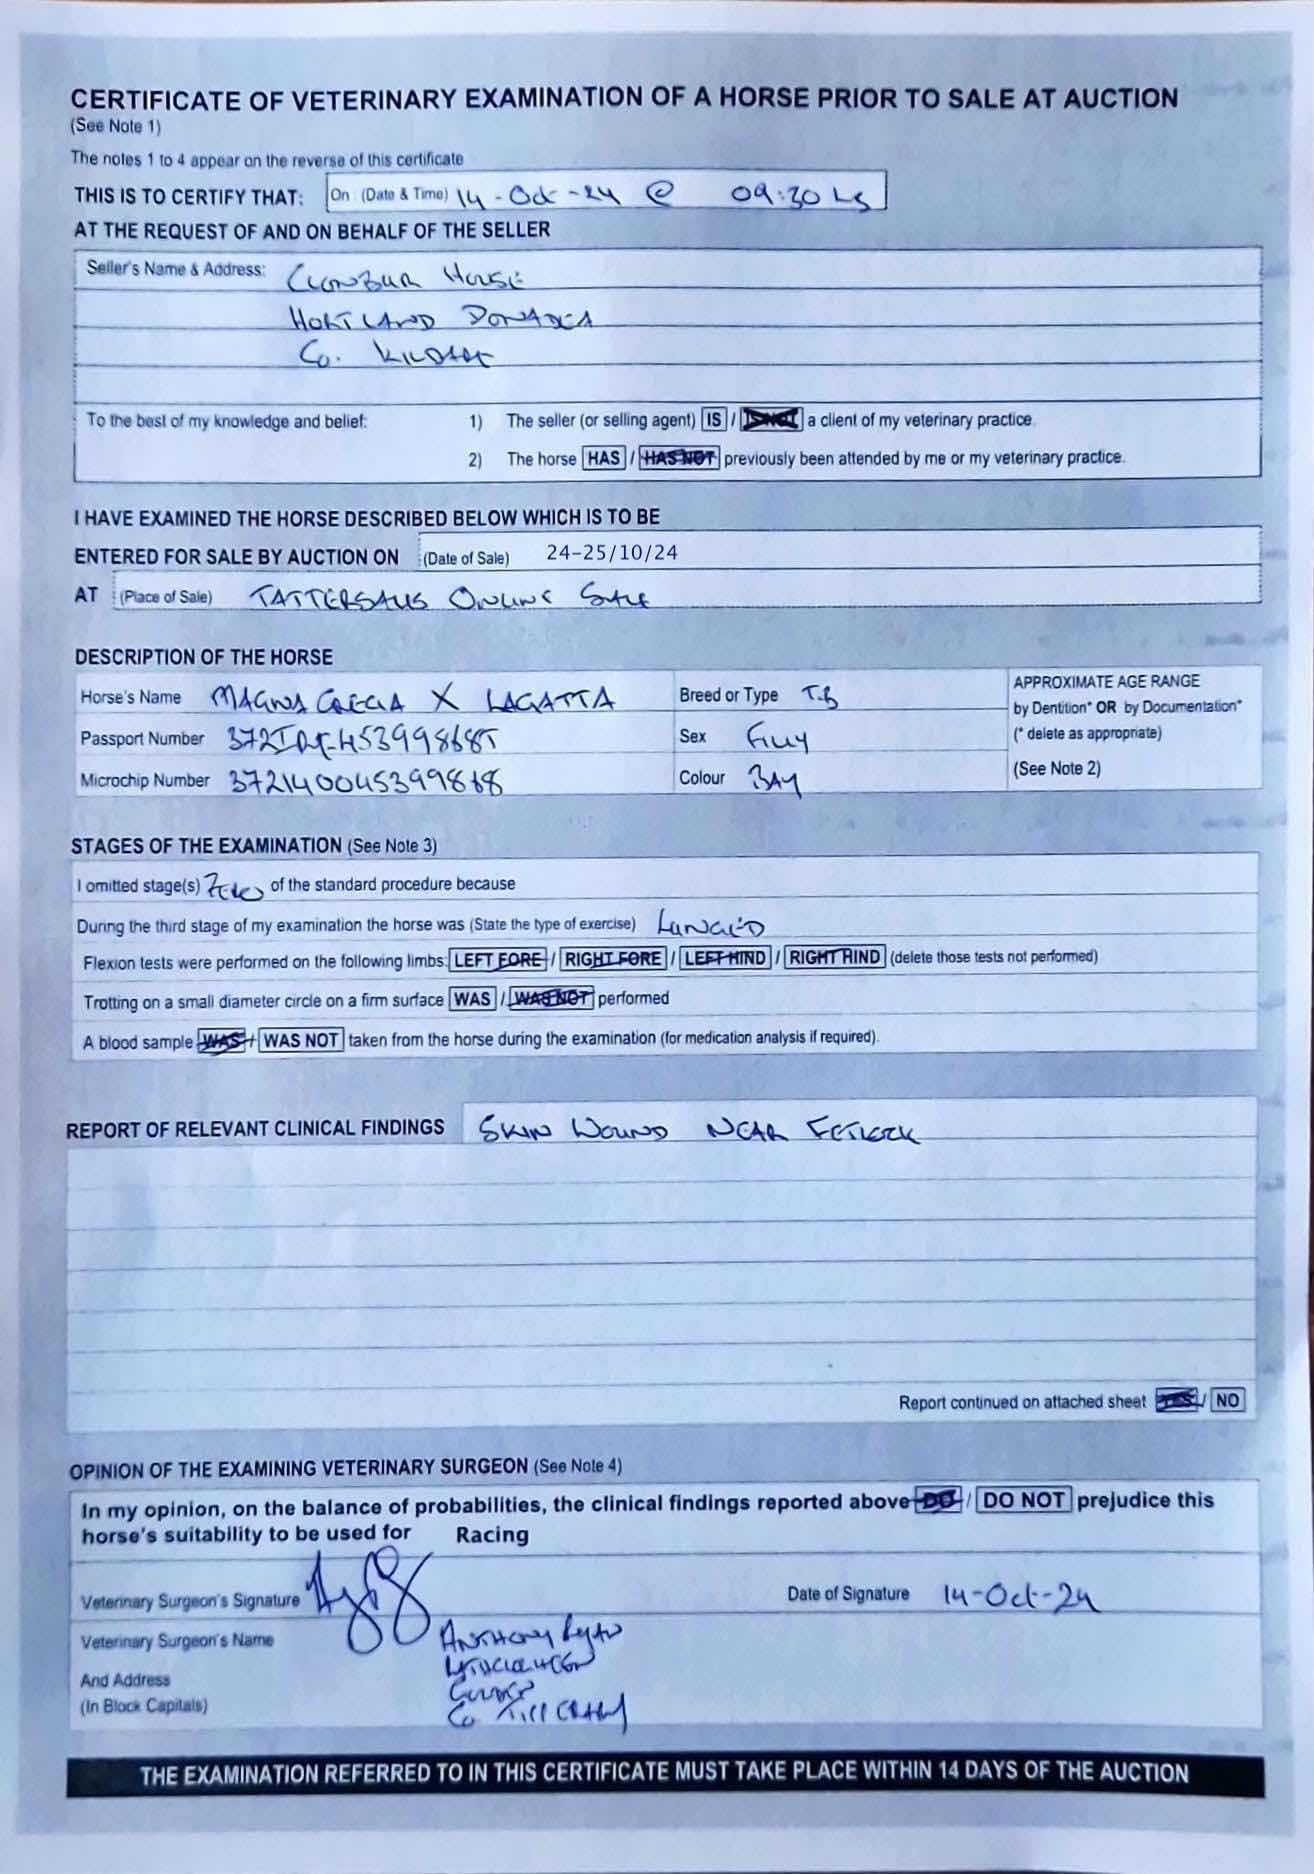 CERTIFICATE OF VETERINARY EXAMINATION OF A HORSE PRIOR TO SALE AT AUCTION
(See Note 1)
The notes 1 to 4 appear on the reverse of this certificate
THIS IS TO CERTIFY THAT: On (Date & Time) 14-Oct-24 @ 09:30
AT THE REQUEST OF AND ON BEHALF OF THE SELLER
Seller's Name & Address: CLONBUR HOUSE
HORTLAND DONADEA
Co. KILDARE
To the best of my knowledge and belief: 1) The seller (or selling agent) IS / IS NOT a client of my veterinary practice.
2) The horse HAS / HAS NOT previously been attended by me or my veterinary practice.
I HAVE EXAMINED THE HORSE DESCRIBED BELOW WHICH IS TO BE
ENTERED FOR SALE BY AUCTION ON (Date of Sale) 24-25/10/24
AT (Place of Sale) TATTERSALLS ONLINE SALE
DESCRIPTION OF THE HORSE
Horse's Name MAGNA GRECIA X LAGATTA Breed or Type T.B APPROXIMATE AGE RANGE
by Dentition* OR by Documentation*
Passport Number Sex FILLY (* delete as appropriate)
Microchip Number 372140045399868 Colour BAY (See Note 2)
STAGES OF THE EXAMINATION (See Note 3)
I omitted stage(s) Zero of the standard procedure because
During the third stage of my examination the horse was (State the type of exercise) LUNGE'D
Flexion tests were performed on the following limbs: LEFT FORE / RIGHT FORE / LEFT HIND / RIGHT HIND (delete those tests not performed)
Trotting on a small diameter circle on a firm surface WAS / WAS NOT performed
A blood sample WAS / WAS NOT taken from the horse during the examination (for medication analysis if required).
REPORT OF RELEVANT CLINICAL FINDINGS SKIN WOUND NEAR FETLOCK
Report continued on attached sheet YES / NO
OPINION OF THE EXAMINING VETERINARY SURGEON (See Note 4)
In my opinion, on the balance of probabilities, the clinical findings reported above DO / DO NOT prejudice this
horse's suitability to be used for Racing
Veterinary Surgeon's Signature Date of Signature 14-Oct-24
Veterinary Surgeon's Name ANTHONY RYAN
And Address
(In Block Capitals) GOLDEN
Co TIPPERARY
THE EXAMINATION REFERRED TO IN THIS CERTIFICATE MUST TAKE PLACE WITHIN 14 DAYS OF THE AUCTION